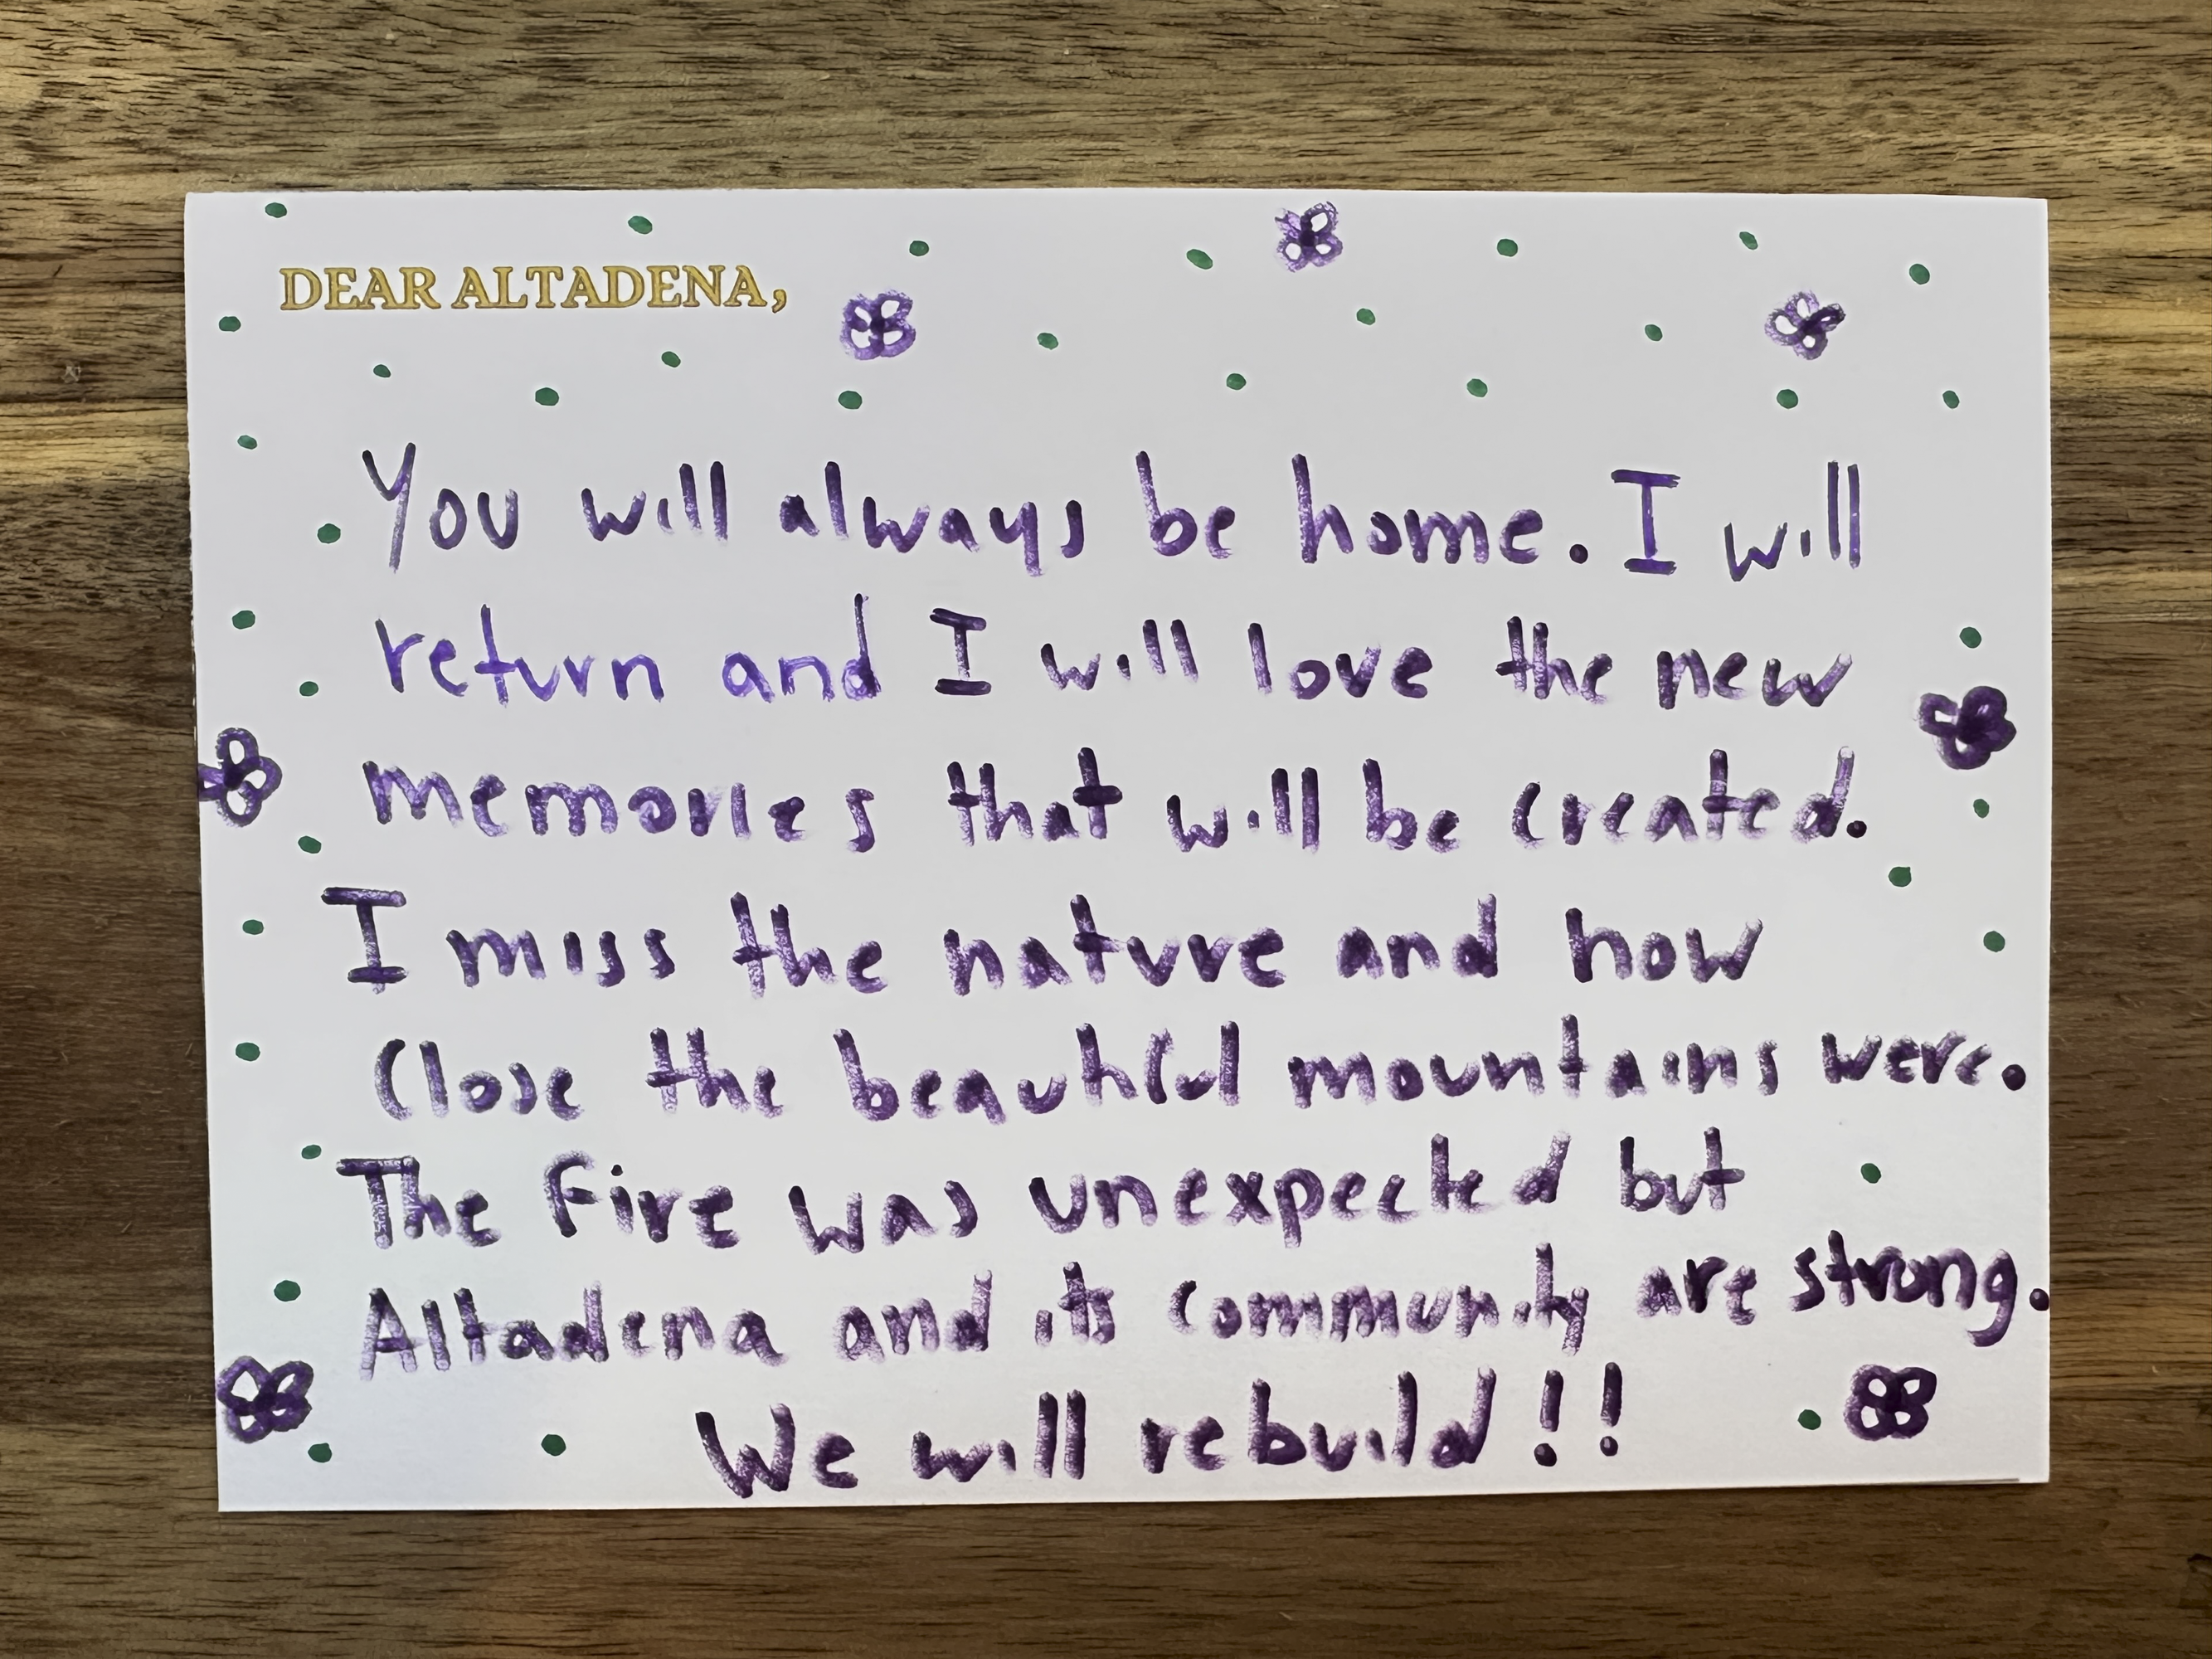 DEAR ALTADENA,
You will always be home. I will
return and I will love the new
memories that will be created.
I miss the nature and how
close the beautiful mountains were.
The Fire was unexpected but
Altadena and its community are strong.
We will rebuild!!